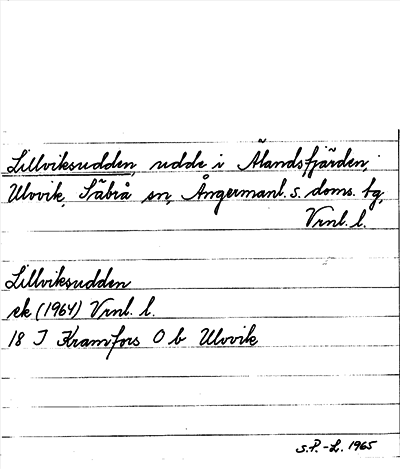 Lillviksudden, udde i Ålandsfjärden,
Ulvvik, Säbrå sn, Ångermanl. s. doms. tg,
Vrnl. l.
Lillviksudden
ek (1964) Vrnl. l.
18 I Kramfors O b Ulvvik
S.P.-L. 1965